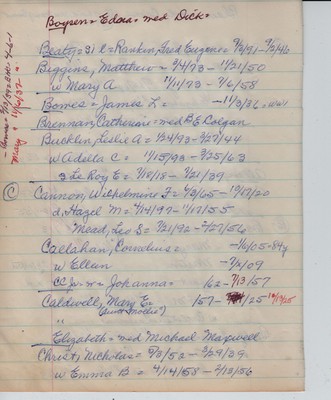 Boysen = Edna = med Dick =
Beatty = 31 E = Rankin, Fred Eugene = 9/2/91 - 9/2/46
Biggins, Matthew = 9/4/73 - 11/21/50
w Mary A 11/11/73 - 7/6/58
Bomes = James L = - 11/3/36
Brennan, Catherine = med B.E. Colgan
Bucklin, Leslie A = 1/24/93 - 3/27/44
w Adella C = 11/15/93 - 3/25/63
3 Le Roy E = 7/18/18 - 1/21/39
C Cannon, Wilhelmine F = 4/2/65 - 10/17/20
d, Hazel M = 4/14/97 - 11/17/55
Mead, Leo S = 7/21/92 - 4/27/56
Callahan, Cornelius = -16/05 - 84y
w Ellen -2/09
CC w = w = Johanna = 62 - 7/13/57
Caldwell, Mary E 157 - /25 10/13/25
(Aunt Mollie)
"
Elizabeth = med Michael Maxwell
Christ, Nicholas = 9/3/52 - 3/29/39
w Emma B = 4/14/58 - 2/13/36
Mary = 11/6/37 =